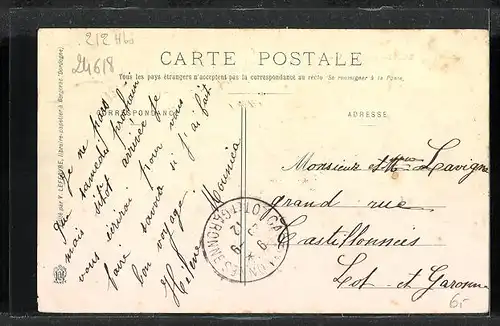 212 Hbo
24618
CARTE POSTALE
Tous les pays étrangers n'acceptent pas la correspondance au recto (Se renseigner à la Poste)
CORRESPONDANCE
ADRESSE
je ne pars
que samedi prochain
mais sitôt arrivée je
vous écrirai pour vous
faire savoir si j'ai fait
bon voyage.
Hélène
Monsieur et Mme Lavigne
grand rue
Castillonnès
Lot et Garonne
CASTILLONNES
LOT-ET-GARONNE
6,-